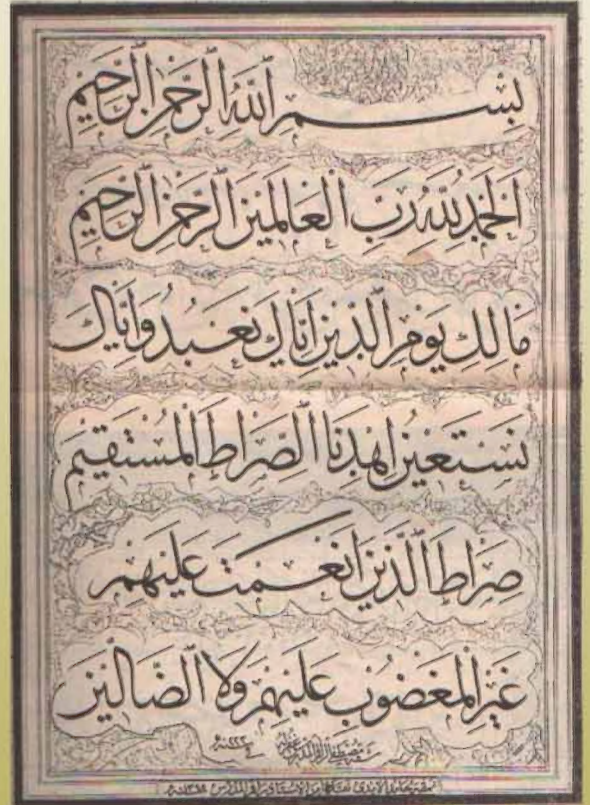 بِسْمِ ٱللَّهِ ٱلرَّحْمٰنِ ٱلرَّحِيمِ
اَلْحَمْدُ لِلّٰهِ رَبِّ ٱلْعَالَمِينَ ٱلرَّحْمٰنِ ٱلرَّحِيمِ
مَالِكِ يَوْمِ ٱلدِّينِ اِيَّاكَ نَعْبُدُ وَاِيَّاكَ
نَسْتَعِينُ اِهْدِنَا ٱلصِّرَاطَ ٱلْمُسْتَقِيمَ
صِرَاطَ ٱلَّذِينَ اَنْعَمْتَ عَلَيْهِمْ
غَيْرِ ٱلْمَغْضُوبِ عَلَيْهِمْ وَلَا ٱلضَّالِّينَ